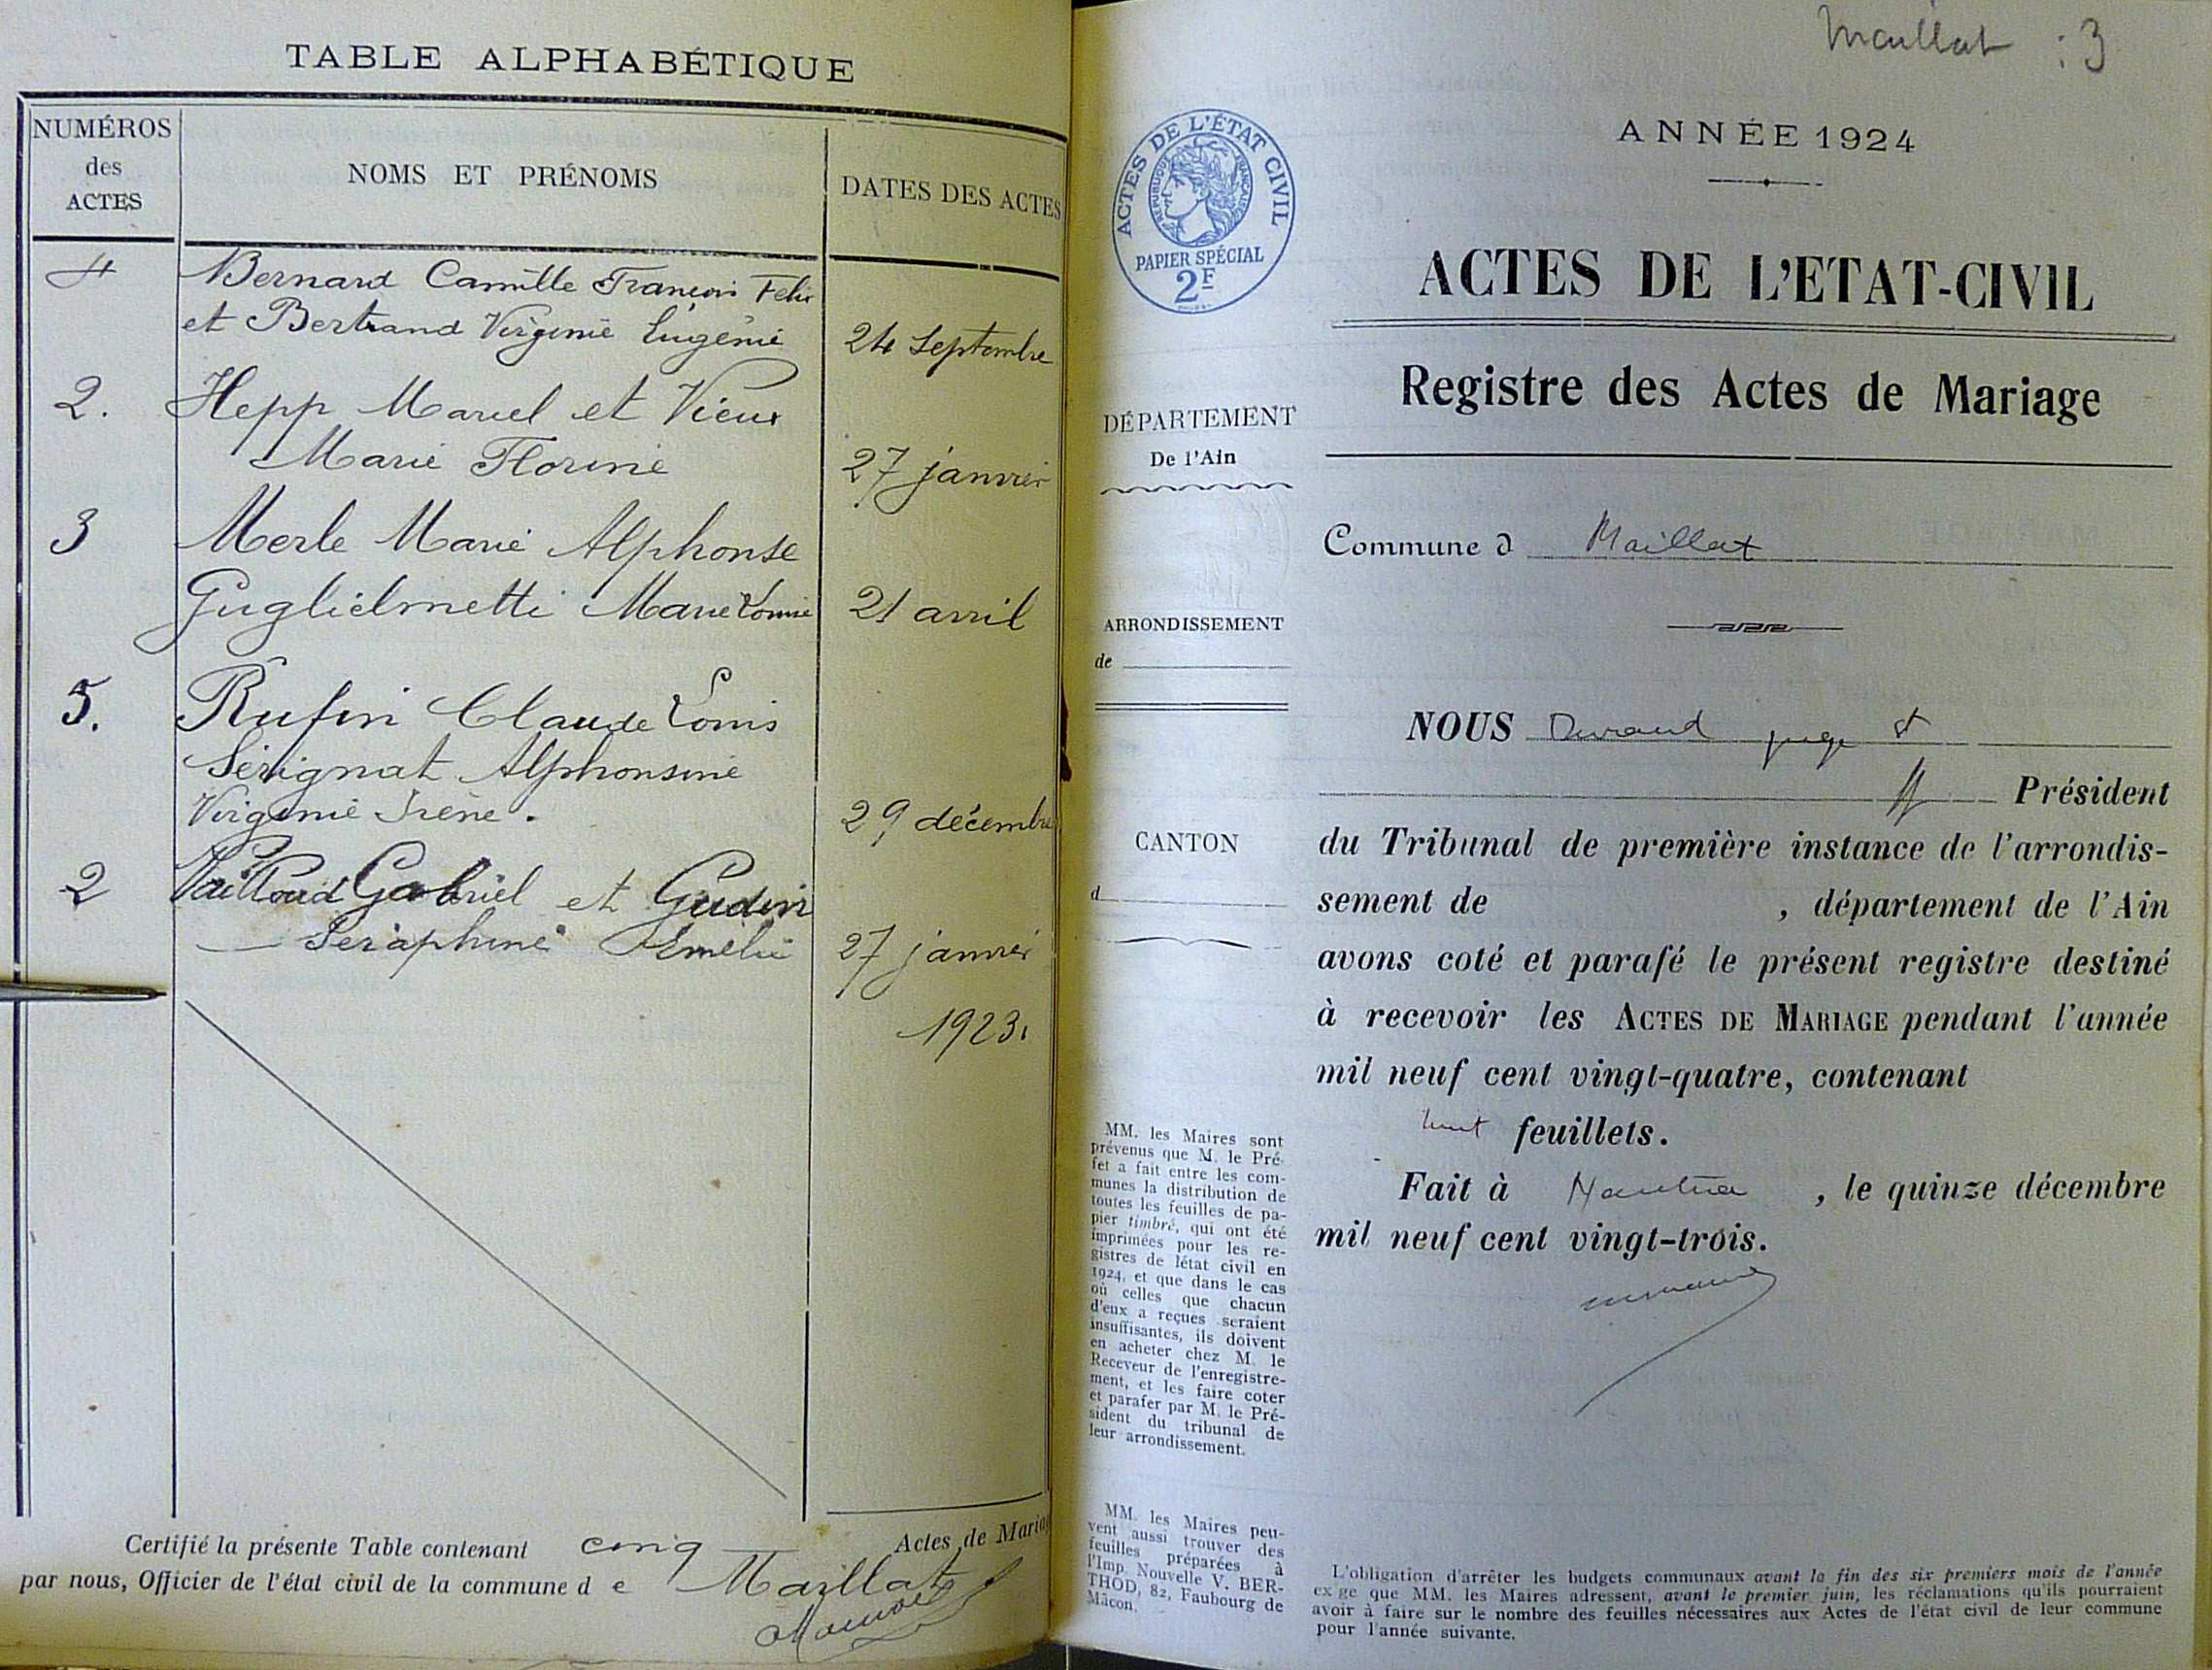 TABLE ALPHABÉTIQUE
NUMÉROS
des
ACTES
NOMS ET PRÉNOMS
DATES DES ACTES
4 Bernard Camille François Felix
et Bertrand Virginie Eugénie 24 septembre
2. Hepp Marcel et Vieux
Marie Florine 27 janvier
3 Merle Marie Alphonse
Guglielmetti Marie Louise 21 avril
5. Rufin Claude Louis
Sérignat Alphonsine
Virginie Irène. 29 décembre
2 Gabriel et Gudin
Séraphine Emélie 27 janvier
1923.
Certifié la présente Table contenant cinq Actes de Mariag
par nous, Officier de l'état civil de la commune d e Maillat
Maillat : 3
ANNÉE 1924
ACTES DE L'ÉTAT CIVIL
RÉPUBLIQUE FRANÇAISE
PAPIER SPÉCIAL
2F
ACTES DE L'ETAT-CIVIL
Registre des Actes de Mariage
DÉPARTEMENT
De l'Ain
Commune d Maillat
ARRONDISSEMENT
de
NOUS Durand juge st
Président
CANTON
d
du Tribunal de première instance de l'arrondis-
sement de , département de l'Ain
avons coté et parafé le présent registre destiné
à recevoir les ACTES DE MARIAGE pendant l'année
mil neuf cent vingt-quatre, contenant
huit feuillets.
Fait à Nantua , le quinze décembre
mil neuf cent vingt-trois.
MM. les Maires sont
prévenus que M. le Pré-
fet a fait entre les com-
munes la distribution de
toutes les feuilles de pa-
pier timbré, qui ont été
imprimées pour les re-
gistres de létat civil en
1924, et que dans le cas
où celles que chacun
d'eux a reçues seraient
insuffisantes, ils doivent
en acheter chez M. le
Receveur de l'enregistre-
ment, et les faire coter
et parafer par M. le Pré-
sident du tribunal de
leur arrondissement.
MM. les Maires peu-
vent aussi trouver des
feuilles préparées à
l'Imp. Nouvelle V. BER-
THOD, 82, Faubourg de
Mâcon.
L'obligation d'arrêter les budgets communaux avant la fin des six premiers mois de l'année
ex ge que MM. les Maires adressent, avant le premier juin, les réclamations qu'ils pourraient
avoir à faire sur le nombre des feuilles nécessaires aux Actes de l'état civil de leur commune
pour l'année suivante.